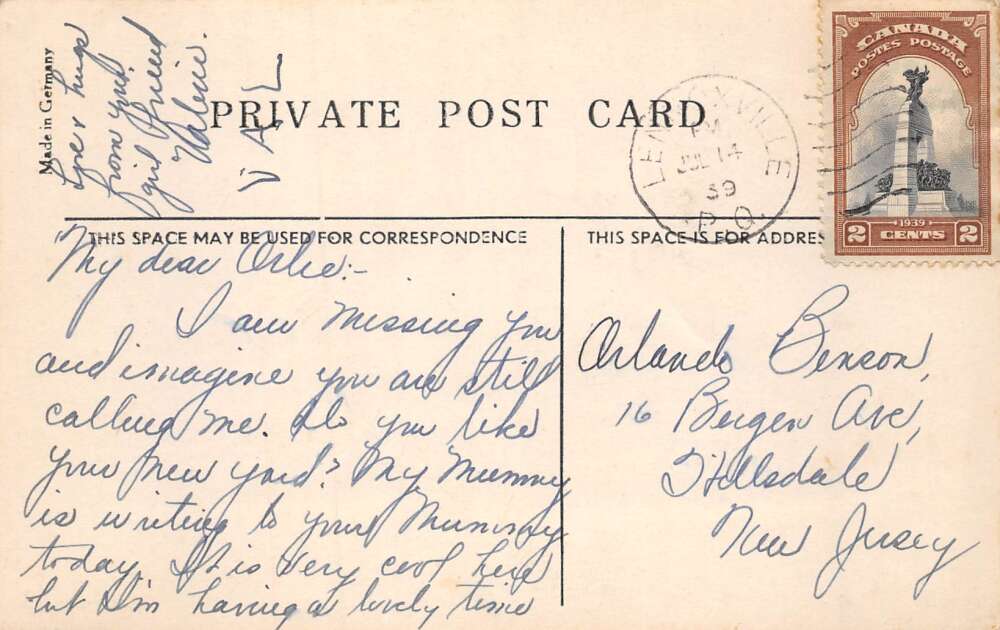 Made in Germany
Love & hugs
from your
girl friend
Valerie.
VAL
PRIVATE POST CARD
LENNOXVILLE
PM
JUL 14
39
P.Q.
CANADA
POSTES POSTAGE
1939
2 CENTS 2
THIS SPACE MAY BE USED FOR CORRESPONDENCE
THIS SPACE IS FOR ADDRES
My dear Orlie:-
I am missing you
and imagine you are still
calling me. Do you like
your new yard? My Mummy
is writing to your Mummy
today. It is very cool here
but I'm having a lovely time
Orlando Benson,
16 Bergen Ave,
Hillsdale
New Jersey